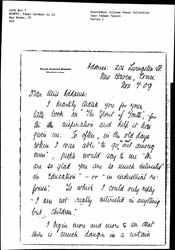 Swarthmore College Peace Collection
Jane Addams Papers
Series 1
Address: 206 Livingston St
New Haven, Conn
Nov. 7-09
Dear Miss Addams:
I heartily thank you for your
little book on "The Spirit of Youth", for
the inspiration and help it has
given me. So often, in the old days
when I was able to go out among
men, people would say to me "We
are so glad you are so much interested
in education" — or — "in industrial re-
forms". To which I could only reply
"I am not really interested in anything
but children."
I begin more and more to see that
there is much danger in a certain